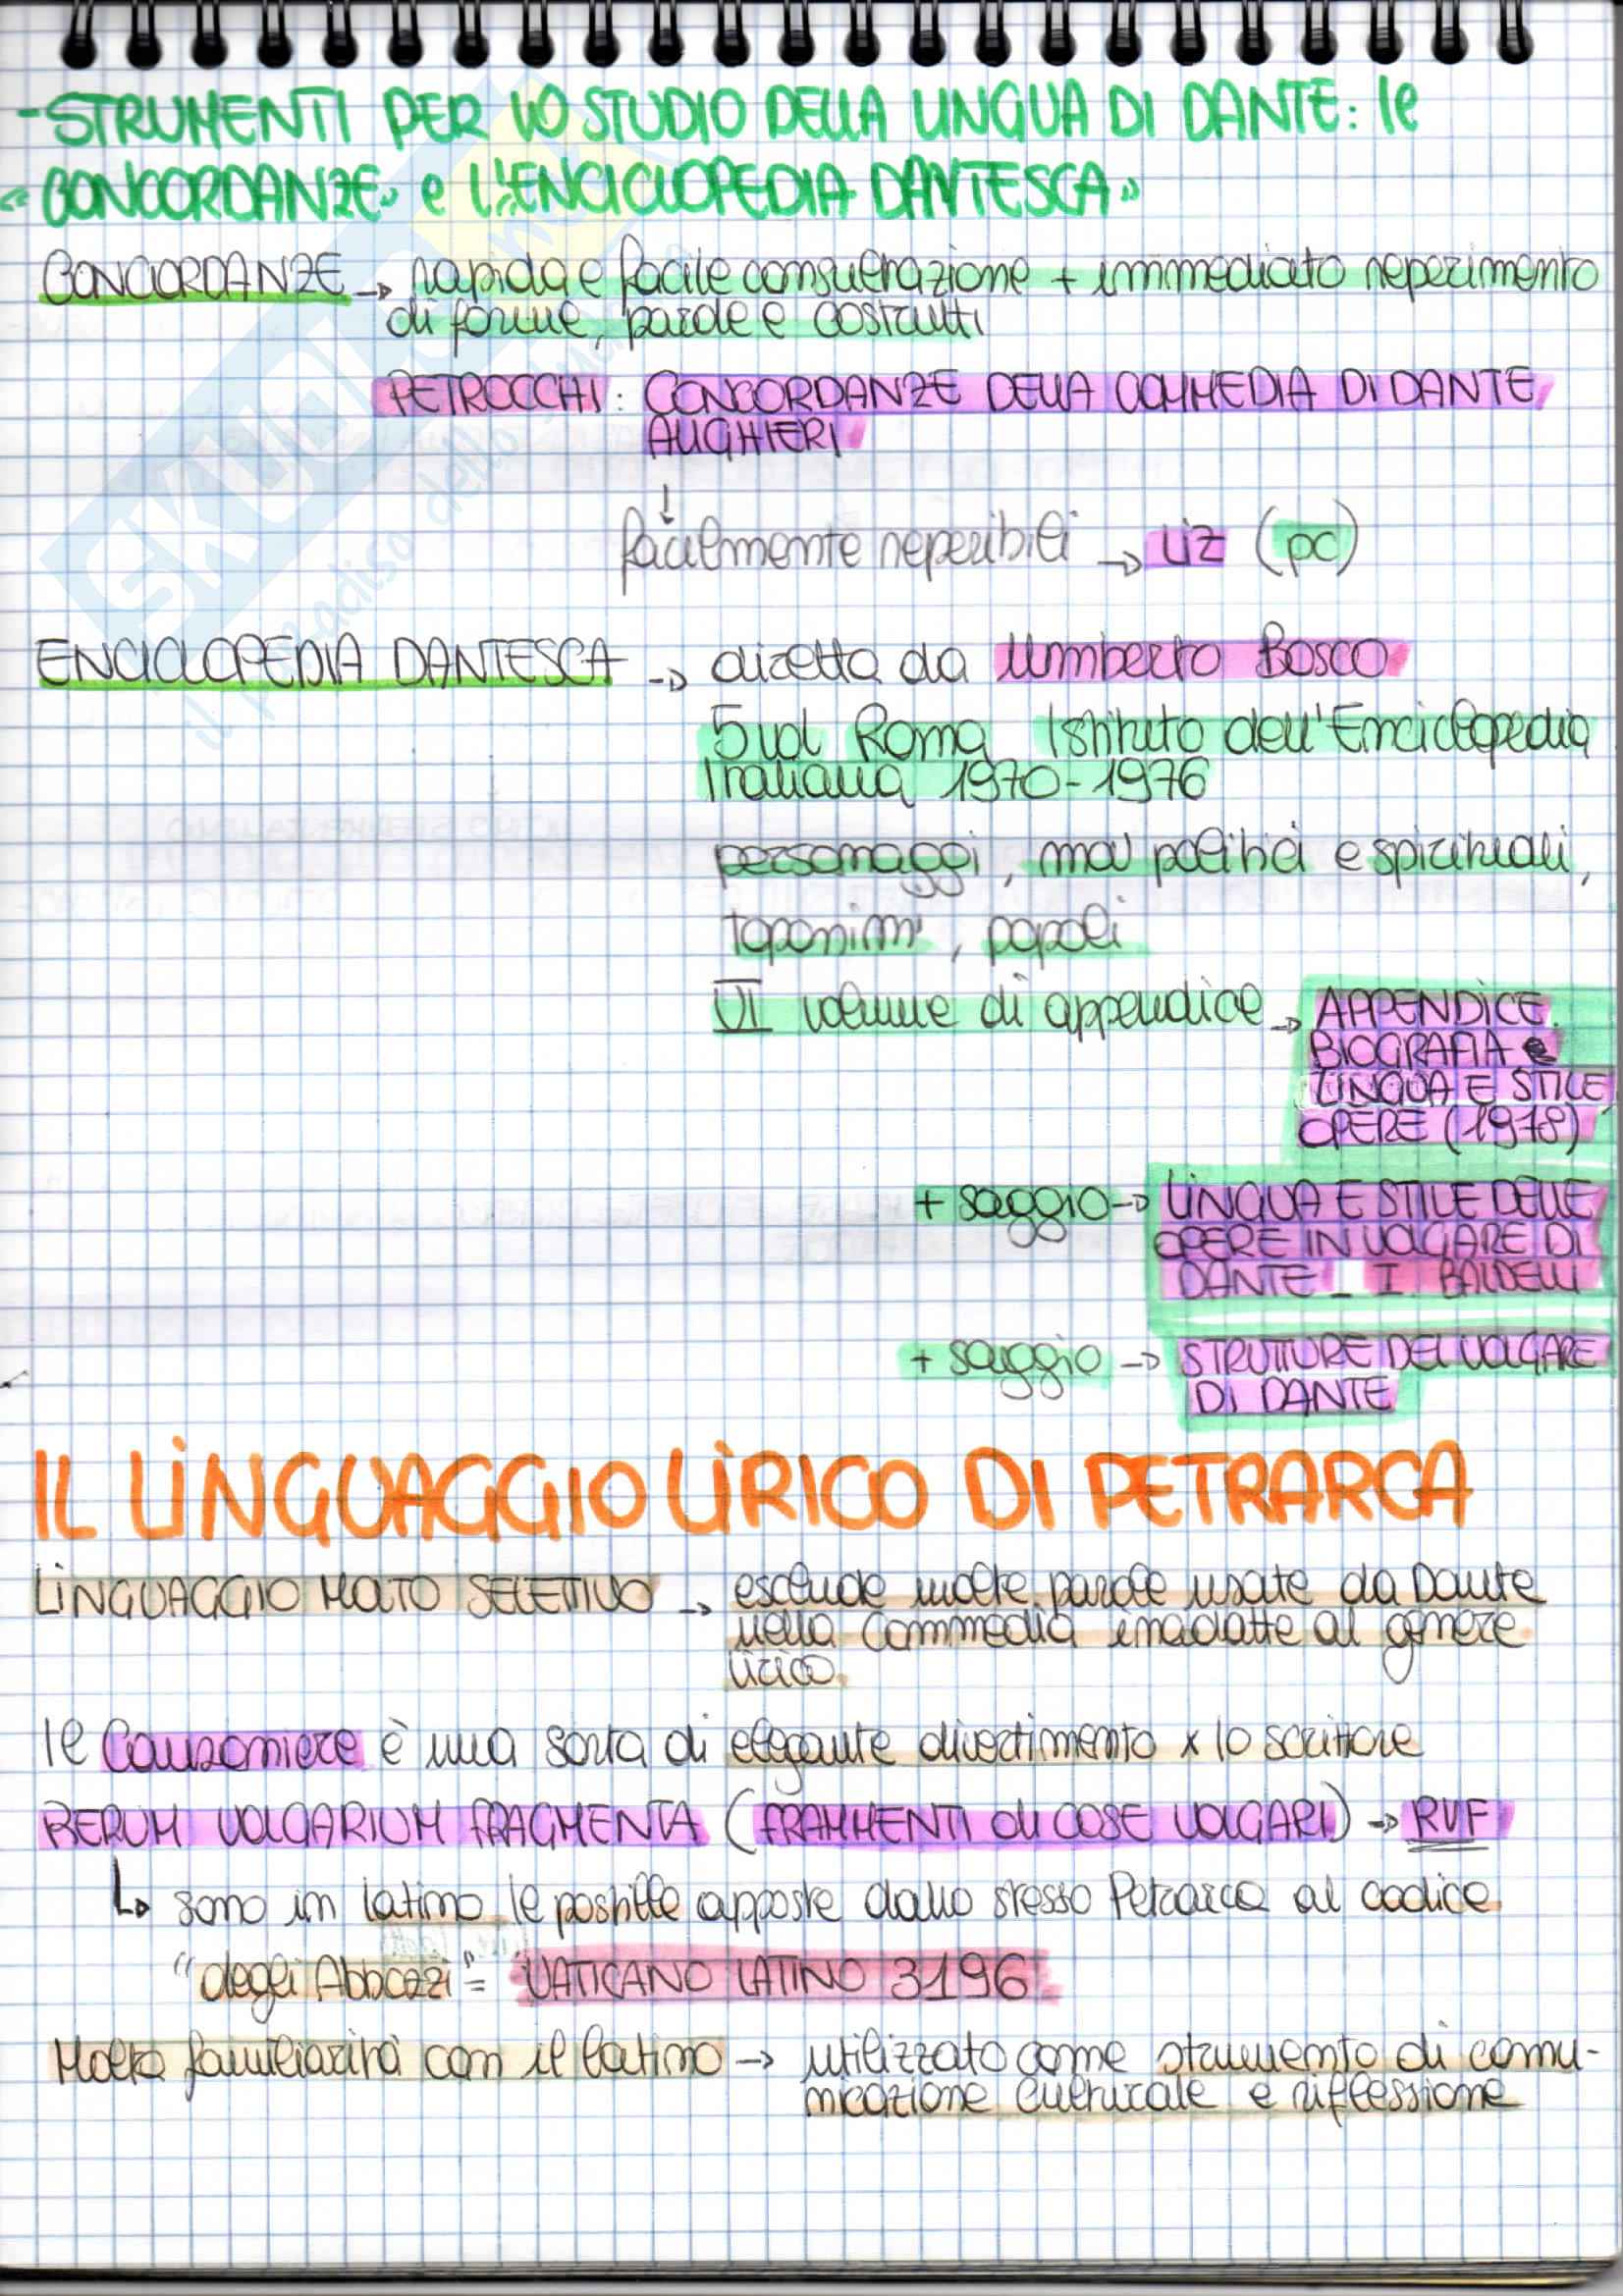 -STRUMENTI PER LO STUDIO DELLA LINGUA DI DANTE: le
"CONCORDANZE" e L'"ENCICLOPEDIA DANTESCA"
CONCORDANZE → rapida e facile consultazione + immediato reperimento
di forme, parole e costrutti
PETROCCHI: CONCORDANZE DELLA COMMEDIA DI DANTE
ALIGHIERI
↓
facilmente reperibili → LIZ (pc)
ENCICLOPEDIA DANTESCA → diretta da Umberto Bosco
5 vol Roma Istituto dell'Enciclopedia
Italiana 1970-1976
personaggi, mov politici e spirituali,
toponimi, popoli
VI volume di appendice → APPENDICE.
BIOGRAFIA e
LINGUA E STILE,
OPERE (1978)
+ saggio → LINGUA E STILE DELLE
OPERE IN VOLGARE DI
DANTE _ I. BALDELLI
+ saggio → STRUTTURE DEL VOLGARE
DI DANTE
IL LINGUAGGIO LIRICO DI PETRARCA
LINGUAGGIO MOLTO SELETTIVO → esclude molte parole usate da Dante
nella Commedia inadatte al genere
lirico.
Il Canzoniere è una sorta di elegante divertimento x lo scrittore
RERUM VOLGARIUM FRAGMENTA (FRAMMENTI di COSE VOLGARI) → RVF
↳ sono in latino le postille apposte dallo stesso Petrarca al codice
"degli Abbozzi" = VATICANO LATINO 3196
Molta familiarità con il latino → utilizzato come strumento di comu-
nicazione culturale e riflessione
SKUOLA.net
il paradiso dello studente